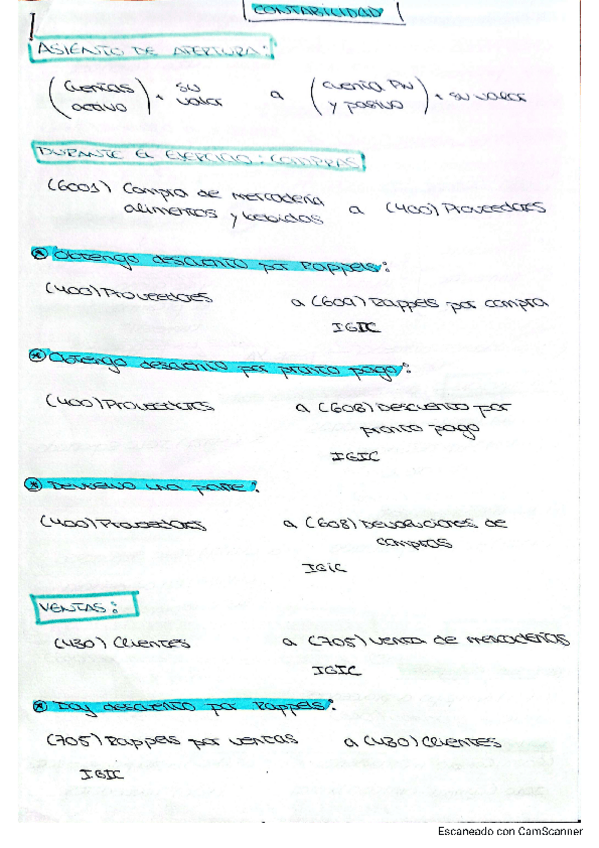 CONTABILIDAD
ASIENTO DE APERTURA:
(Cuentas activo) + su valor a (cuenta PN y pasivo) + su valor
DURANTE EL EJERCICIO: COMPRAS
(6001) Compra de mercadería a (400) Proveedores
alimentos y bebidas
* Obtengo descuento por Rappels:
(400) Proveedores a (609) Rappels por compra
IGIC
* Obtengo descuento por pronto pago:
(400) Proveedores a (606) Descuento por
pronto pago
IGIC
* Devuelvo una parte:
(400) Proveedores a (608) Devoluciones de
compras
IGIC
VENTAS:
(430) Clientes a (705) Venta de mercaderías
IGIC
* Doy descuento por Rappels:
(705) Rappels por ventas a (430) Clientes
IGIC
Escaneado con CamScanner